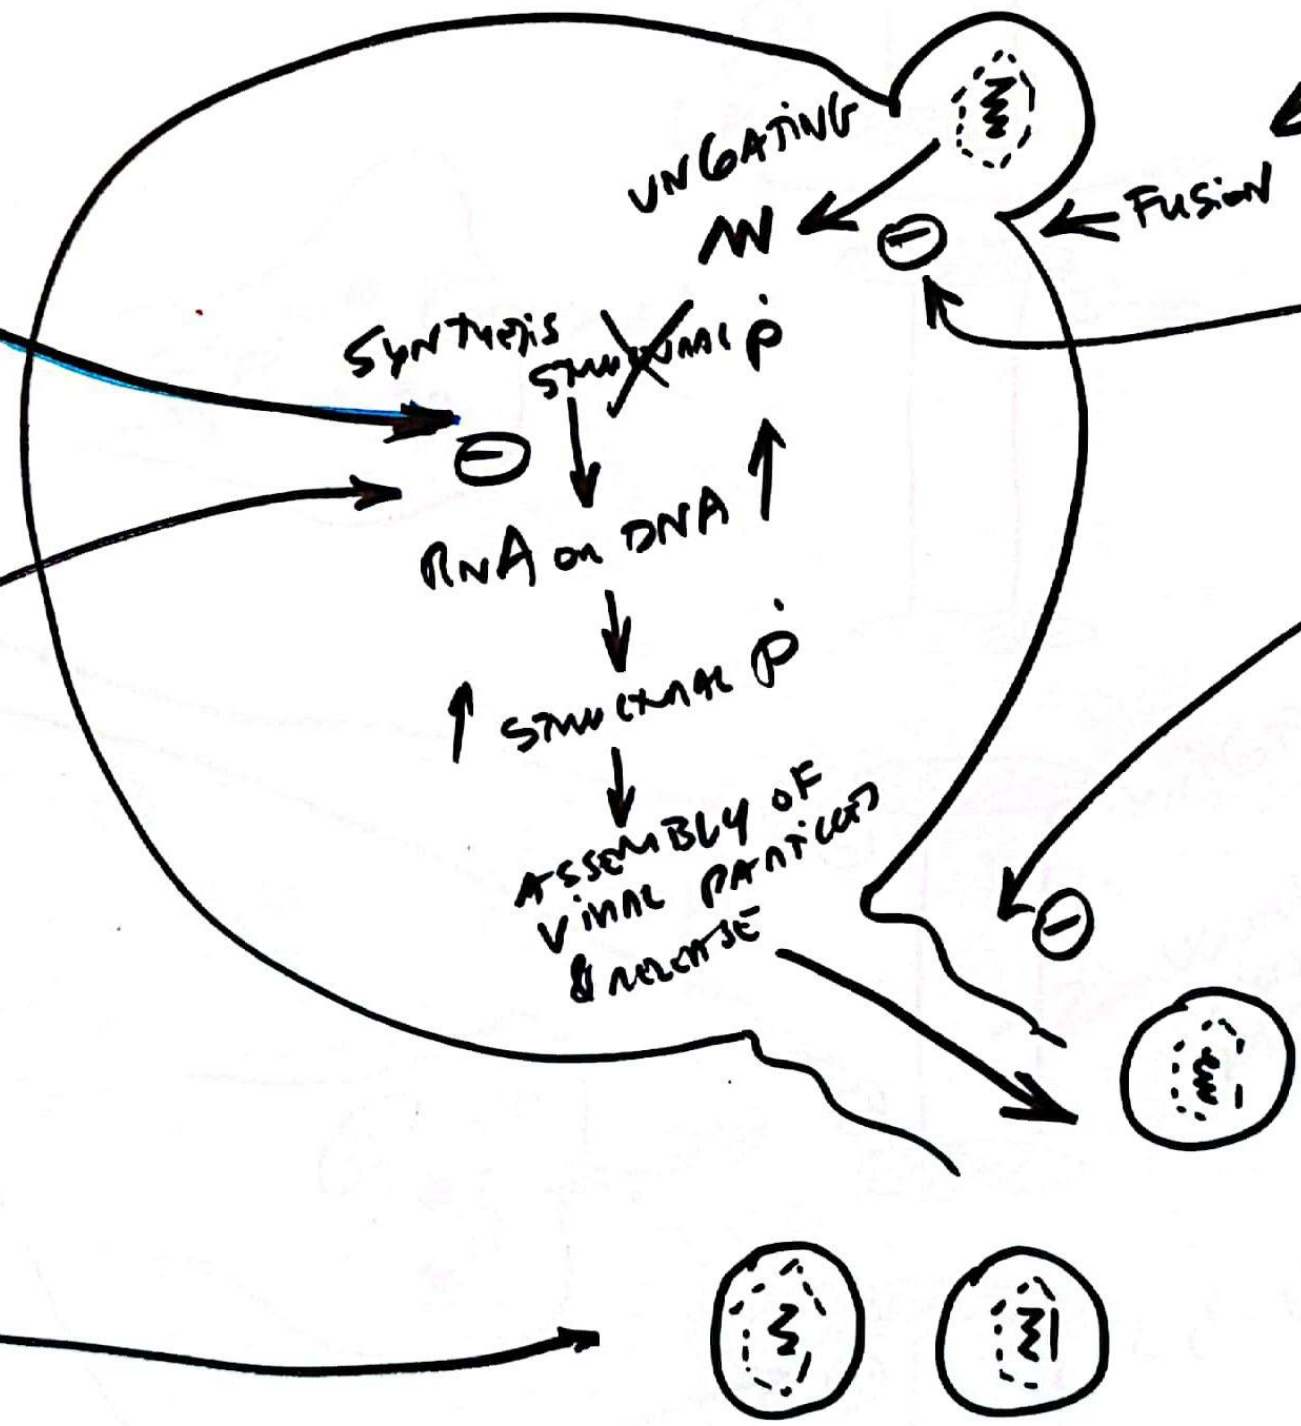 UNGATING
FUSION
⊖
SYNTHESIS
STRUCTURAL Ṗ
⊖
RNA OR DNA ↑
↑ STRUCTURAL Ṗ
ASSEMBLY OF
VIRAL PARTICLES
& RELEASE
⊖